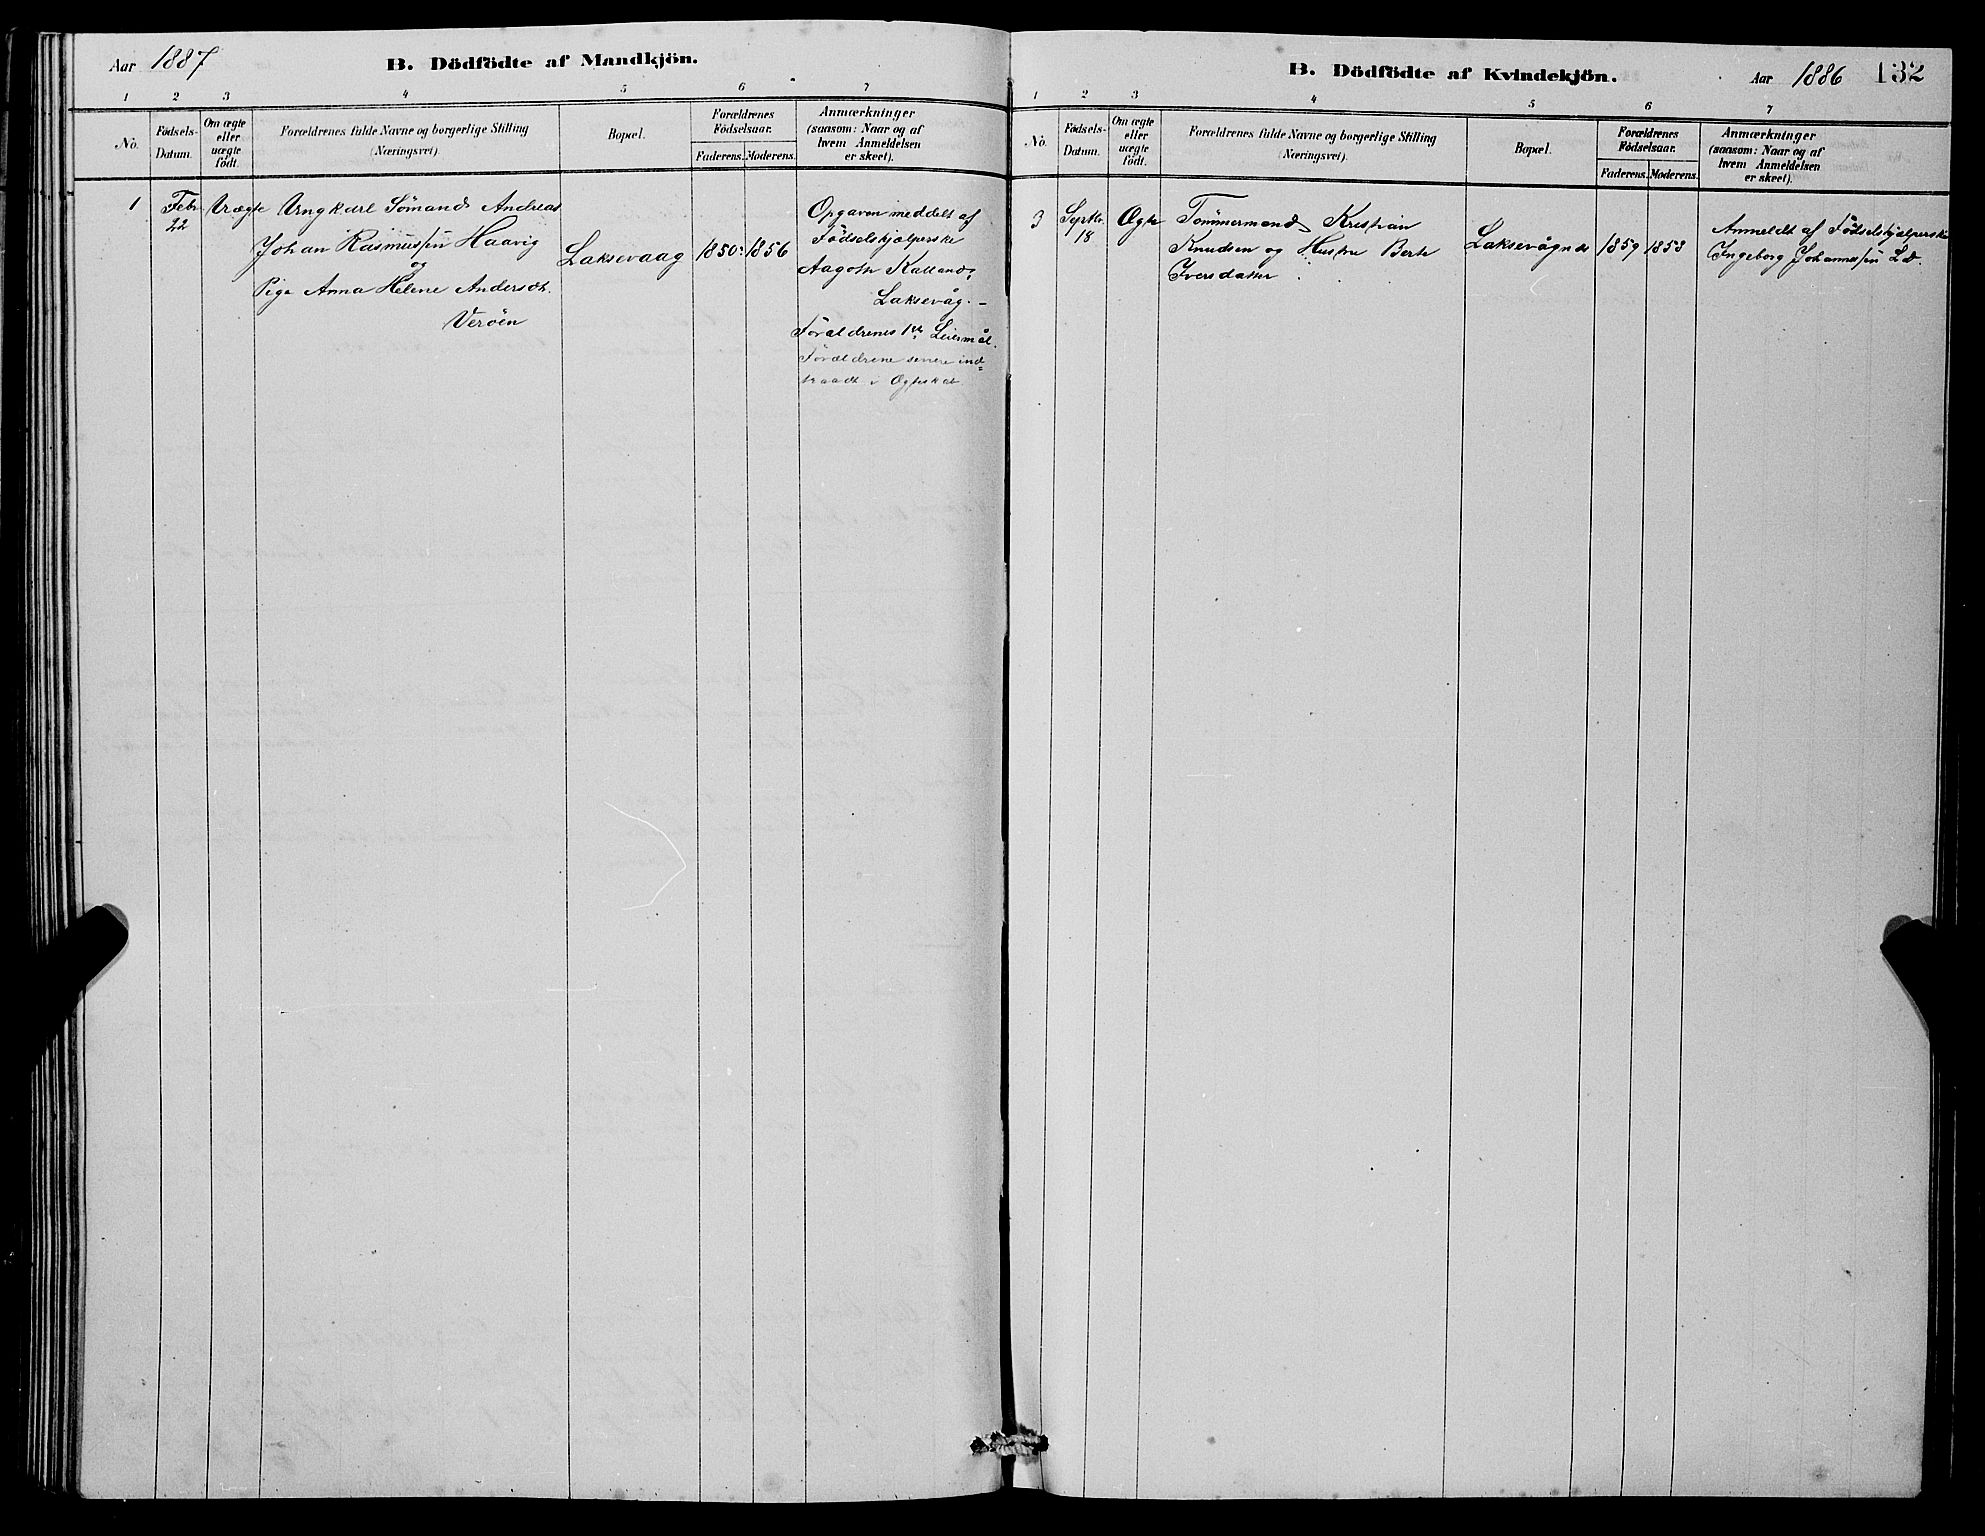 Aar 1887
B. Dödfödte af Mandkjön.
1 2 3 4 5 6 7
No.
Födsels-
Datum.
Om ægte
eller
uægte
födt.
Forældrenes fulde Navne og borgerlige Stilling
(Næringsvei).
Bopæl.
Forældrenes
Födselsaar.
Faderens. Moderens.
Anmærkninger
(saasom: Naar og af
hvem Anmeldelsen
er skeet).
1
Febr
22
Uægte
Ungkarl Sömand Andreas
Johan Rasmussen Haavig
og
Pige Anna Helene Andersdt.
Veröen
Laksevaag
1850 1856
Opgaven meddelt af
Födselshjælperske
Aagothe Kalland,
Laksevåg. –
Forældrenes 1ste Leiermål.
Forældrene senere ind=
traadt i Ægteskab
B. Dödfödte af Kvindekjön.
Aar 1886
132
1 2 3 4 5 6 7
No.
Födsels-
Datum.
Om ægte
eller
uægte
födt.
Forældrenes fulde Navne og borgerlige Stilling
(Næringsvei).
Bopæl.
Forældrenes
Födselsaar.
Faderens. Moderens.
Anmærkninger
(saasom: Naar og af
hvem Anmeldelsen
er skeet).
3
Septbr.
18
Ægte
Tömmermand Kristian
Knudsen og Hustru Berte
Iversdatter
1859 1853
Anmeldt af Födselshjælperske
Ingeborg Johannessen